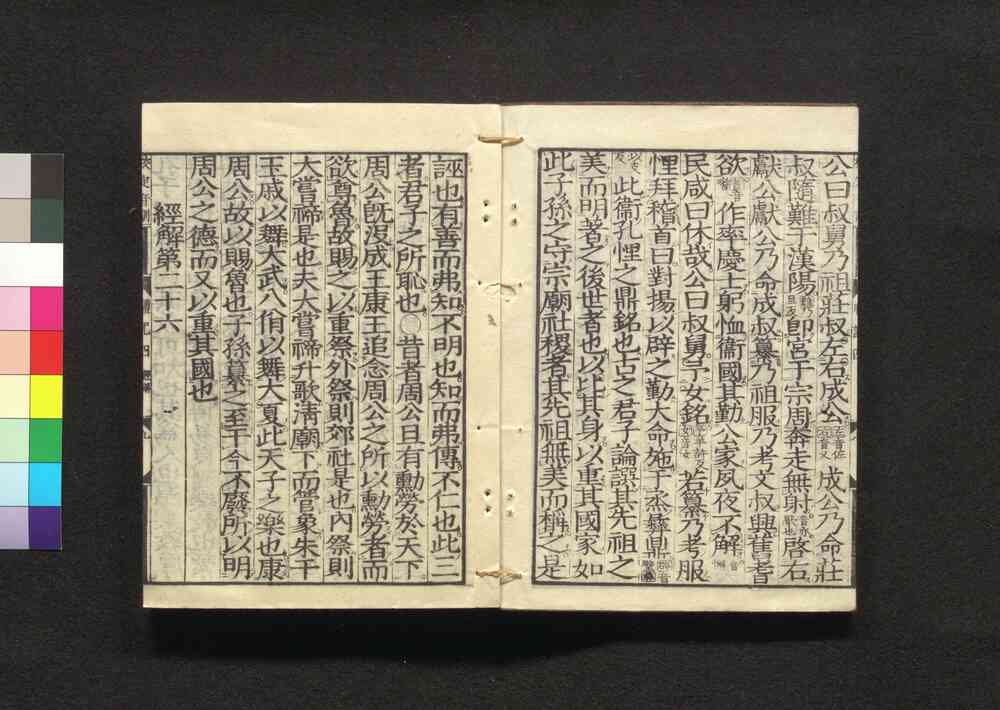 公曰叔舅乃祖莊叔左右成公成公乃命莊
叔隨難于漢陽即宮于宗周奔走無射啓右
獻公獻公乃命成叔纂乃祖服乃考文叔興舊耆
欲作率慶士躬恤衞國其勤公家夙夜不解
民咸曰休哉公曰叔舅予女銘若纂乃考服
悝拜稽首曰對揚以辟之勤大命施于烝彝鼎
此衞孔悝之鼎銘也古之君子論譔其先祖之
美而明著之後世者也以比其身以重其國家如
此子孫之守宗廟社稷者其先祖無美而稱之是
誣也有善而弗知不明也知而弗傳不仁也此三
者君子之所恥也○昔者周公旦有勳勞於天下
周公既沒成王康王追念周公之所以勳勞者而
欲尊魯故賜之以重祭外祭則郊社是也內祭則
大嘗禘是也夫大嘗禘升歌清廟下而管象朱干
玉戚以舞大武八佾以舞大夏此天子之樂也康
周公故以賜魯也子孫纂之至于今不廢所以明
周公之德而又以重其國也
經解第二十六